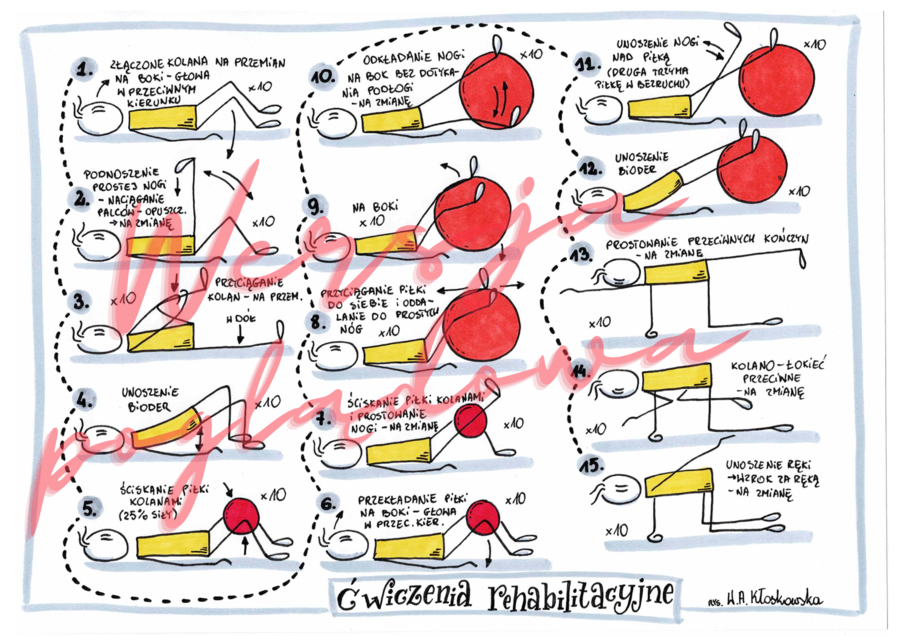 1.
ZŁĄCZONE KOLANA NA PRZEMIAN
NA BOKI - GŁOWA
W PRZECIWNYM
KIERUNKU
x10
2.
PODNOSZENIE
PROSTEJ NOGI
- NACIĄGANIE
PALCÓW - OPUSZCZ.
→ NA ZMIANĘ
x10
3.
x10
PRZYCIĄGANIE
KOLAN - NA PRZEM.
W DÓŁ
4.
UNOSZENIE
BIODER
x10
5.
ŚCISKANIE PIŁKI
KOLANAMI
(25% SIŁY)
x10
6.
PRZEKŁADANIE PIŁKI
NA BOKI - GŁOWA
W PRZEC. KIER.
x10
7.
ŚCISKANIE PIŁKI KOLANAMI
I PROSTOWANIE
NOGI - NA ZMIANĘ
x10
8.
PRZYCIĄGANIE PIŁKI
DO SIEBIE I ODDA-
LANIE DO PROSTYCH
NÓG
x10
9.
NA BOKI
x10
10.
ODKŁADANIE NOGI
NA BOK BEZ DOTYKA-
NIA PODŁOGI
- NA ZMIANĘ
x10
11.
UNOSZENIE NOGI
NAD PIŁKĄ
(DRUGA TRZYMA
PIŁKĘ W BEZRUCHU)
x10
12.
UNOSZENIE
BIODER
x10
13.
PROSTOWANIE PRZECIWNYCH KOŃCZYN
- NA ZMIANĘ
x10
14.
KOLANO - ŁOKIEĆ
PRZECIWNE
- NA ZMIANĘ
x10
15.
UNOSZENIE RĘKI
→ WZROK ZA RĘKĄ
- NA ZMIANĘ
x10
Wersja
poglądowa
Ćwiczenia rehabilitacyjne
rys. H.A. Kłoskowska